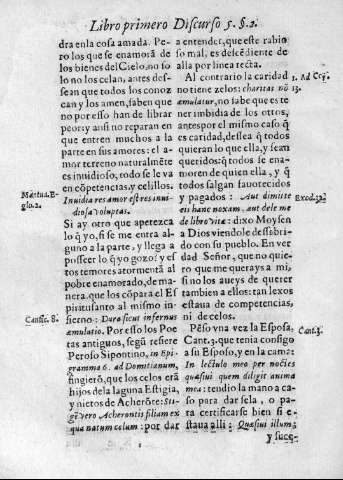 Libro primero Discurso 5. §. 2.
dra en la cosa amada. Pe-
ro los que se enamorã de
los bienes del Cielo, no so
lo no los celan, antes des-
sean que todos los conoz
can y los amen, saben que
no por esso han de librar
peor; y ansi no reparan en
que entren muchos a la
parte en sus amores: el a-
mor terreno naturalmẽte
es inuidioso, todo se le va
en cõpetencias, y celillos.
Inuidia res amor est res inui-
diosa voluptas.
Si ay otro que apetezca
lo q̃ yo, si se me entra al-
guno a la parte, y llega a
posseer lo q̃ yo gozo: y es
tos temores atormentã al
pobre enamorado, de ma-
nera, que los cõpara el Es
piritu santo al mismo in-
fierno: Dura sicut infernus
æmulatio. Por esso los Poe
tas antiguos, segũ refiere
Peroso Sipontino, in Epi-
gramma 6. ad Domitianum,
fingierõ, que los celos erã
hijos de la laguna Estigia,
y nietos de Acherõte: Sti-
gẽ vero Acherontis filiam ex
qua natum colum: por dar
Mãtua. E-
glo. 2.
Cantic. 8.
a entender, que este rabio
so mal, es descẽdiente de
alla por linea recta.
Al contrario la caridad
no tiene zelos: charitas nõ
æmulatur, no sabe que es te
ner imbidia de los otros,
antes por el mismo caso q̃
es caridad, dessea q̃ todos
quieran lo que ella, y sean
queridos: q̃ todos se ena-
moren de quien ella, y q̃
todos salgan fauorecidos
y pagados: Aut dimitte
eis hanc noxam, aut dele me
de libro vitæ: dixo Moysen
a Dios viendole desabri-
do con su pueblo. En ver
dad Señor, que no quie-
ro que me querays a mi,
si no los aueys de querer
tambien a ellos: tan lexos
estaua de competencias,
ni de celos.
Pẽso vna vez la Esposa,
Cant. 3. que tenia consigo
a su Esposo, y en la cama:
In lectulo meo per noctes
quæsiui quem diligit anima
mea: tendio la mano a ca-
so para dar se la, o pa-
ra certificarse bien si e-
staua alli: Quæsiui illum;
y suce-
1. Ad Corĩ.
13.
Exod. 32.
Cant. 3.